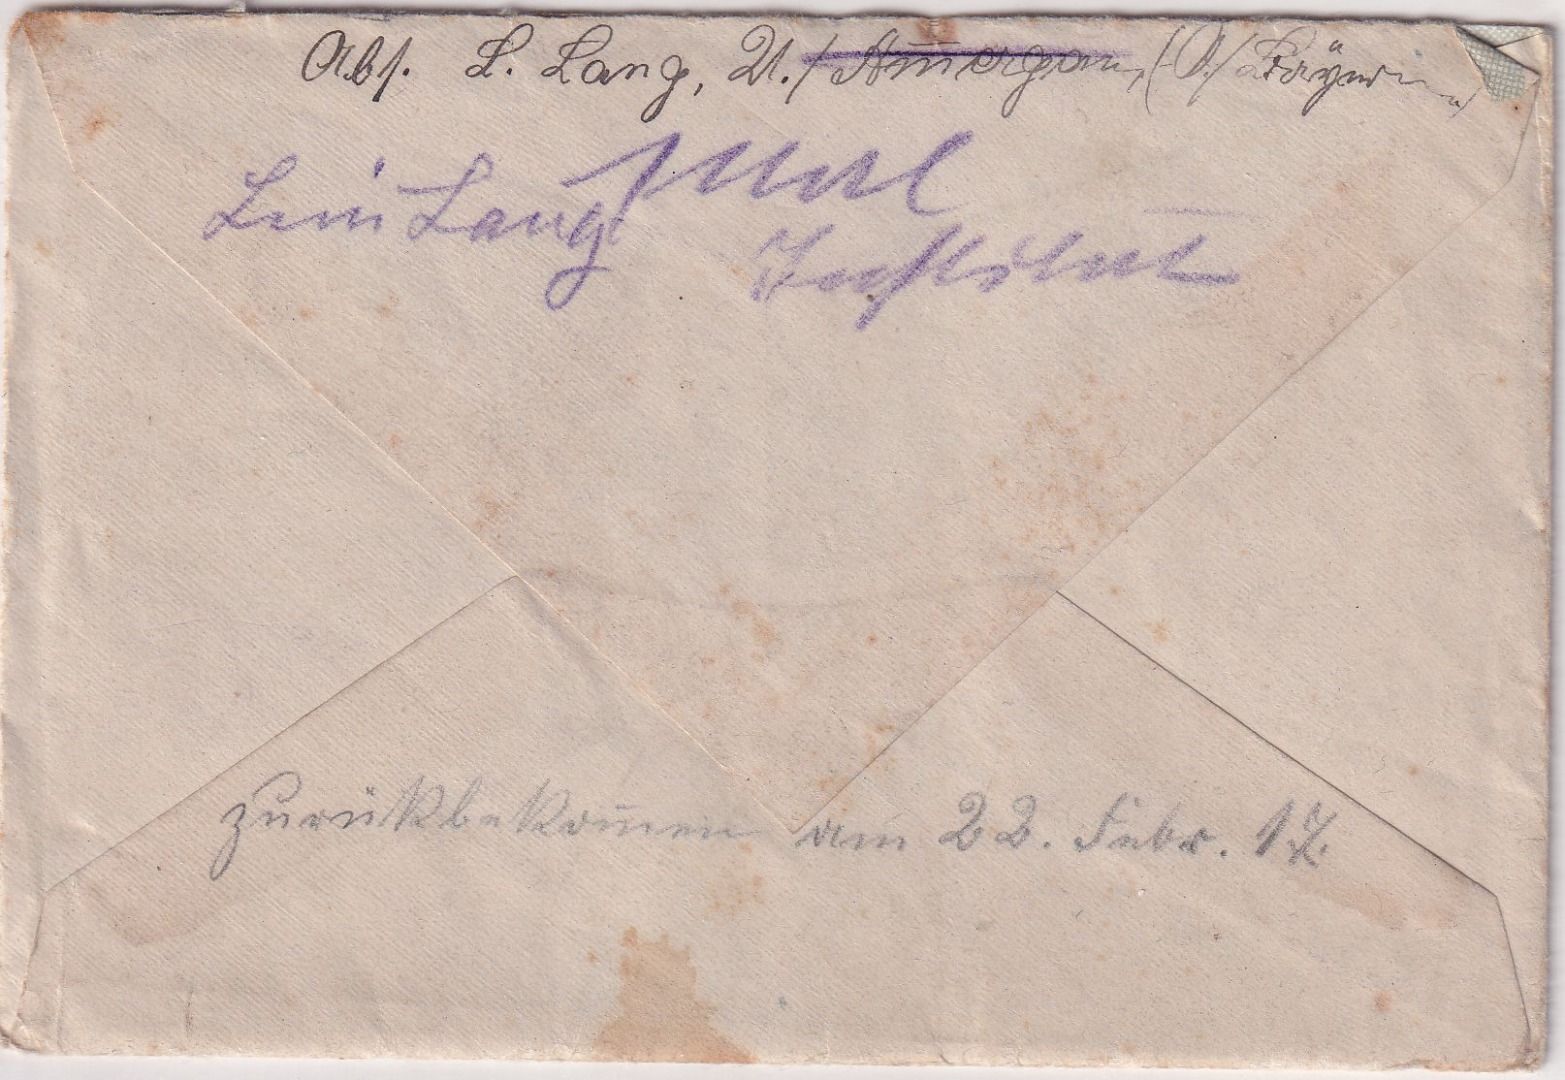 Abs. L. Lang, U./Ammergau, (O./Bayern)
Lang
zurückbekommen am 22. Febr. 17.